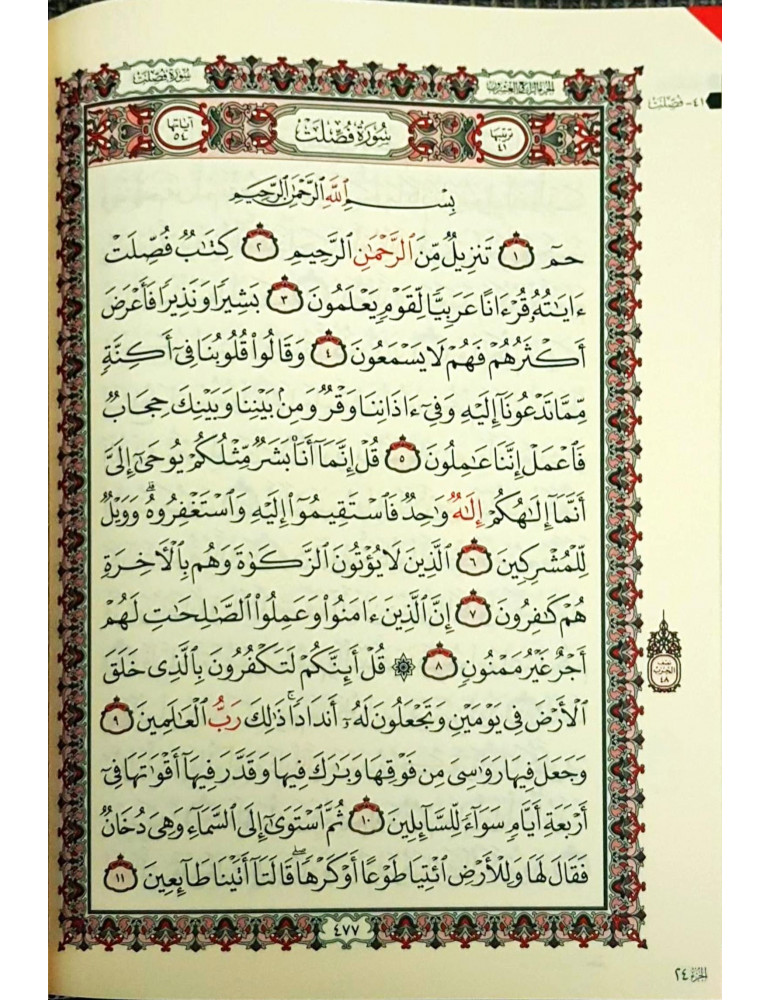 سُورَةُ فُصِّلَتْ
الجزء الرابع والعشرون
٤١- فُصِّلَتْ
ترتيبها ٤١
سُورَةُ فُصِّلَتْ
آياتها ٥٤
بِسْمِ ٱللَّهِ ٱلرَّحْمَٰنِ ٱلرَّحِيمِ
حمٓ ١ تَنزِيلٌ مِّنَ ٱلرَّحْمَٰنِ ٱلرَّحِيمِ ٢ كِتَٰبٌ فُصِّلَتْ
ءَايَٰتُهُۥ قُرْءَانًا عَرَبِيًّا لِّقَوْمٍ يَعْلَمُونَ ٣ بَشِيرًا وَنَذِيرًا فَأَعْرَضَ
أَكْثَرُهُمْ فَهُمْ لَا يَسْمَعُونَ ٤ وَقَالُوا۟ قُلُوبُنَا فِىٓ أَكِنَّةٍ
مِّمَّا تَدْعُونَآ إِلَيْهِ وَفِىٓ ءَاذَانِنَا وَقْرٌ وَمِنۢ بَيْنِنَا وَبَيْنِكَ حِجَابٌ
فَٱعْمَلْ إِنَّنَا عَٰمِلُونَ ٥ قُلْ إِنَّمَآ أَنَا۠ بَشَرٌ مِّثْلُكُمْ يُوحَىٰٓ إِلَىَّ
أَنَّمَآ إِلَٰهُكُمْ إِلَٰهٌ وَٰحِدٌ فَٱسْتَقِيمُوٓا۟ إِلَيْهِ وَٱسْتَغْفِرُوهُ ۗ وَوَيْلٌ
لِّلْمُشْرِكِينَ ٦ ٱلَّذِينَ لَا يُؤْتُونَ ٱلزَّكَوٰةَ وَهُم بِٱلْءَاخِرَةِ
هُمْ كَٰفِرُونَ ٧ إِنَّ ٱلَّذِينَ ءَامَنُوا۟ وَعَمِلُوا۟ ٱلصَّٰلِحَٰتِ لَهُمْ
أَجْرٌ غَيْرُ مَمْنُونٍ ٨ ۞ قُلْ أَئِنَّكُمْ لَتَكْفُرُونَ بِٱلَّذِى خَلَقَ
ٱلْأَرْضَ فِى يَوْمَيْنِ وَتَجْعَلُونَ لَهُۥٓ أَندَادًا ۚ ذَٰلِكَ رَبُّ ٱلْعَٰلَمِينَ ٩
وَجَعَلَ فِيهَا رَوَٰسِىَ مِن فَوْقِهَا وَبَٰرَكَ فِيهَا وَقَدَّرَ فِيهَآ أَقْوَٰتَهَا فِىٓ
أَرْبَعَةِ أَيَّامٍ سَوَآءً لِّلسَّآئِلِينَ ١٠ ثُمَّ ٱسْتَوَىٰٓ إِلَى ٱلسَّمَآءِ وَهِىَ دُخَانٌ
فَقَالَ لَهَا وَلِلْأَرْضِ ٱئْتِيَا طَوْعًا أَوْ كَرْهًا ۖ قَالَتَآ أَتَيْنَا طَآئِعِينَ ١١
نصف الحزب ٤٨
٤٧٧
الجزء ٢٤